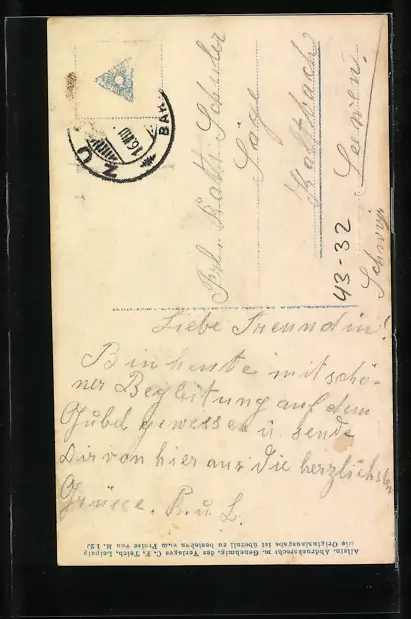 Frl. Kathi Schuler
Säge
Kaltbach
Seewen.
Schwyz
43-32
ZU
16.VIII
BAH
Liebe Freundin!
Bin heute mit schö-
ner Begleitung auf dem
Gubel gewessen u. sende
Dir von hier aus die herzlichsten
Grüsse. B. u. L.
Allein. Abdrucksrecht m. Genehmig. des Verlages C. F. Teich, Leipzig
Die Originalausgabe ist überall zu beziehen zum Preise von M. 1.20